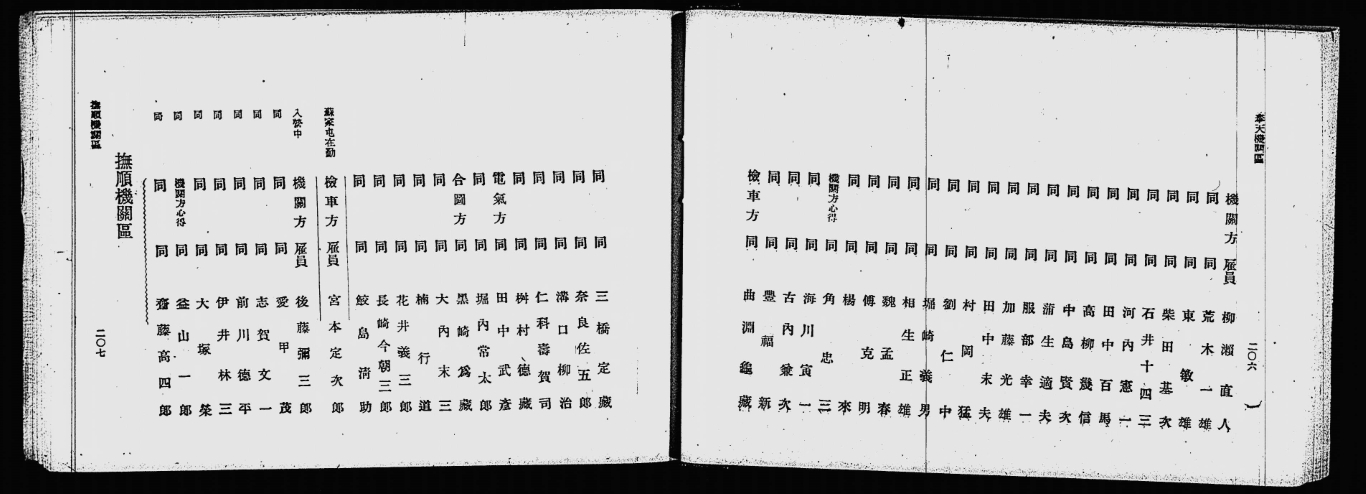 奉天機關區
二〇六
機關方 雇員 柳瀬直人
同 同 荒木一雄
同 同 東敏雄
同 同 柴田基次
同 同 石井十四三
同 同 河內憲一
同 同 田中百馬
同 同 高柳幾信
同 同 中島賢次
同 同 蒲生適夫
同 同 服部幸一
同 同 加藤光雄
同 同 田中末夫
同 同 村岡猛
同 同 劉仁中
同 同 堀崎義男
同 同 相生正雄
同 同 魏孟春
同 同 傅克明
同 同 楊來
機關方心得 同 角忠三
同 同 海川寅一
同 同 古內兼次
同 同 豊福新
檢車方 同 曲淵龜藏
同 同 三橋定藏
同 同 奈良佐五郎
同 同 溝口柳治
同 同 仁科壽賀司
同 同 桝村德藏
電氣方 同 田中武彥
同 同 堀內常太郎
合圖方 同 黑崎爲藏
同 同 大內末三
同 同 楠行道
同 同 花井義三郎
同 同 長崎今朝三郎
同 同 鮫島淸助
蘇家屯在勤 檢車方 雇員 宮本定次郎
入營中 機關方 雇員 後藤彌三郎
同 同 同 愛甲茂
同 同 同 志賀文一
同 同 同 前川德平
同 同 同 伊井林三
同 同 同 大塚榮
同 機關方心得 同 益山一郎
同 同 同 齋藤高四郎
撫順機關區
撫順機關區
二〇七